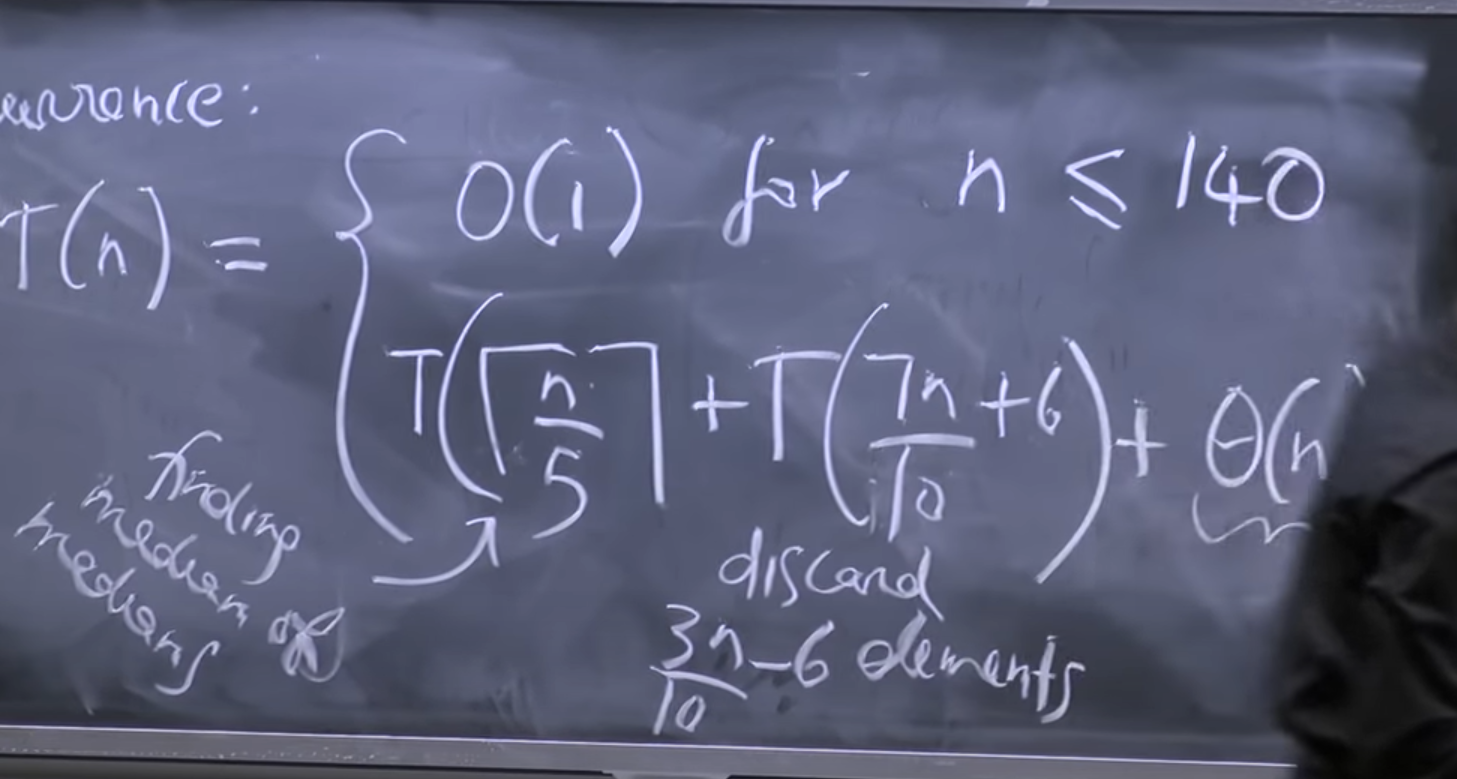 urrence:
T(n) = { O(1) for n ≤ 140
T(⌈n/5⌉ + T(7n/10 + 6) + Θ(n
finding
median of
medians
discard
3n/10 - 6 elements